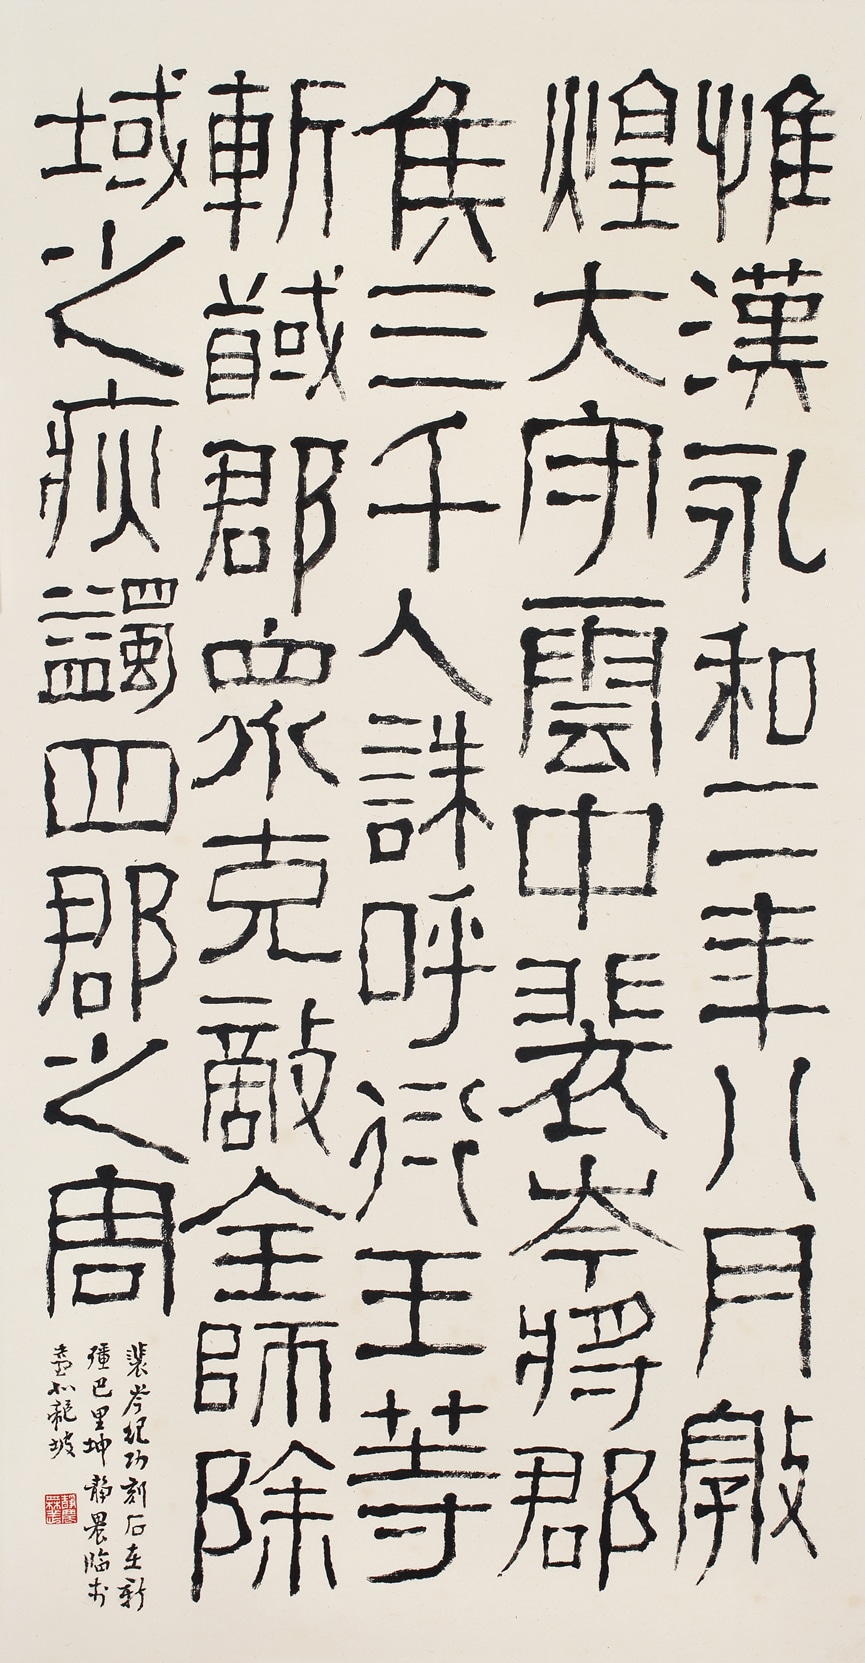 惟漢永和二年八月敦
煌大守雲中裴岑將郡
侯三千人誅呼衍王等
斬馘郡眾克敵全師除
域之疢蠲四郡之害
裴岑紀功刻石在新
疆巴里坤 靜農臨於
臺北龍坡